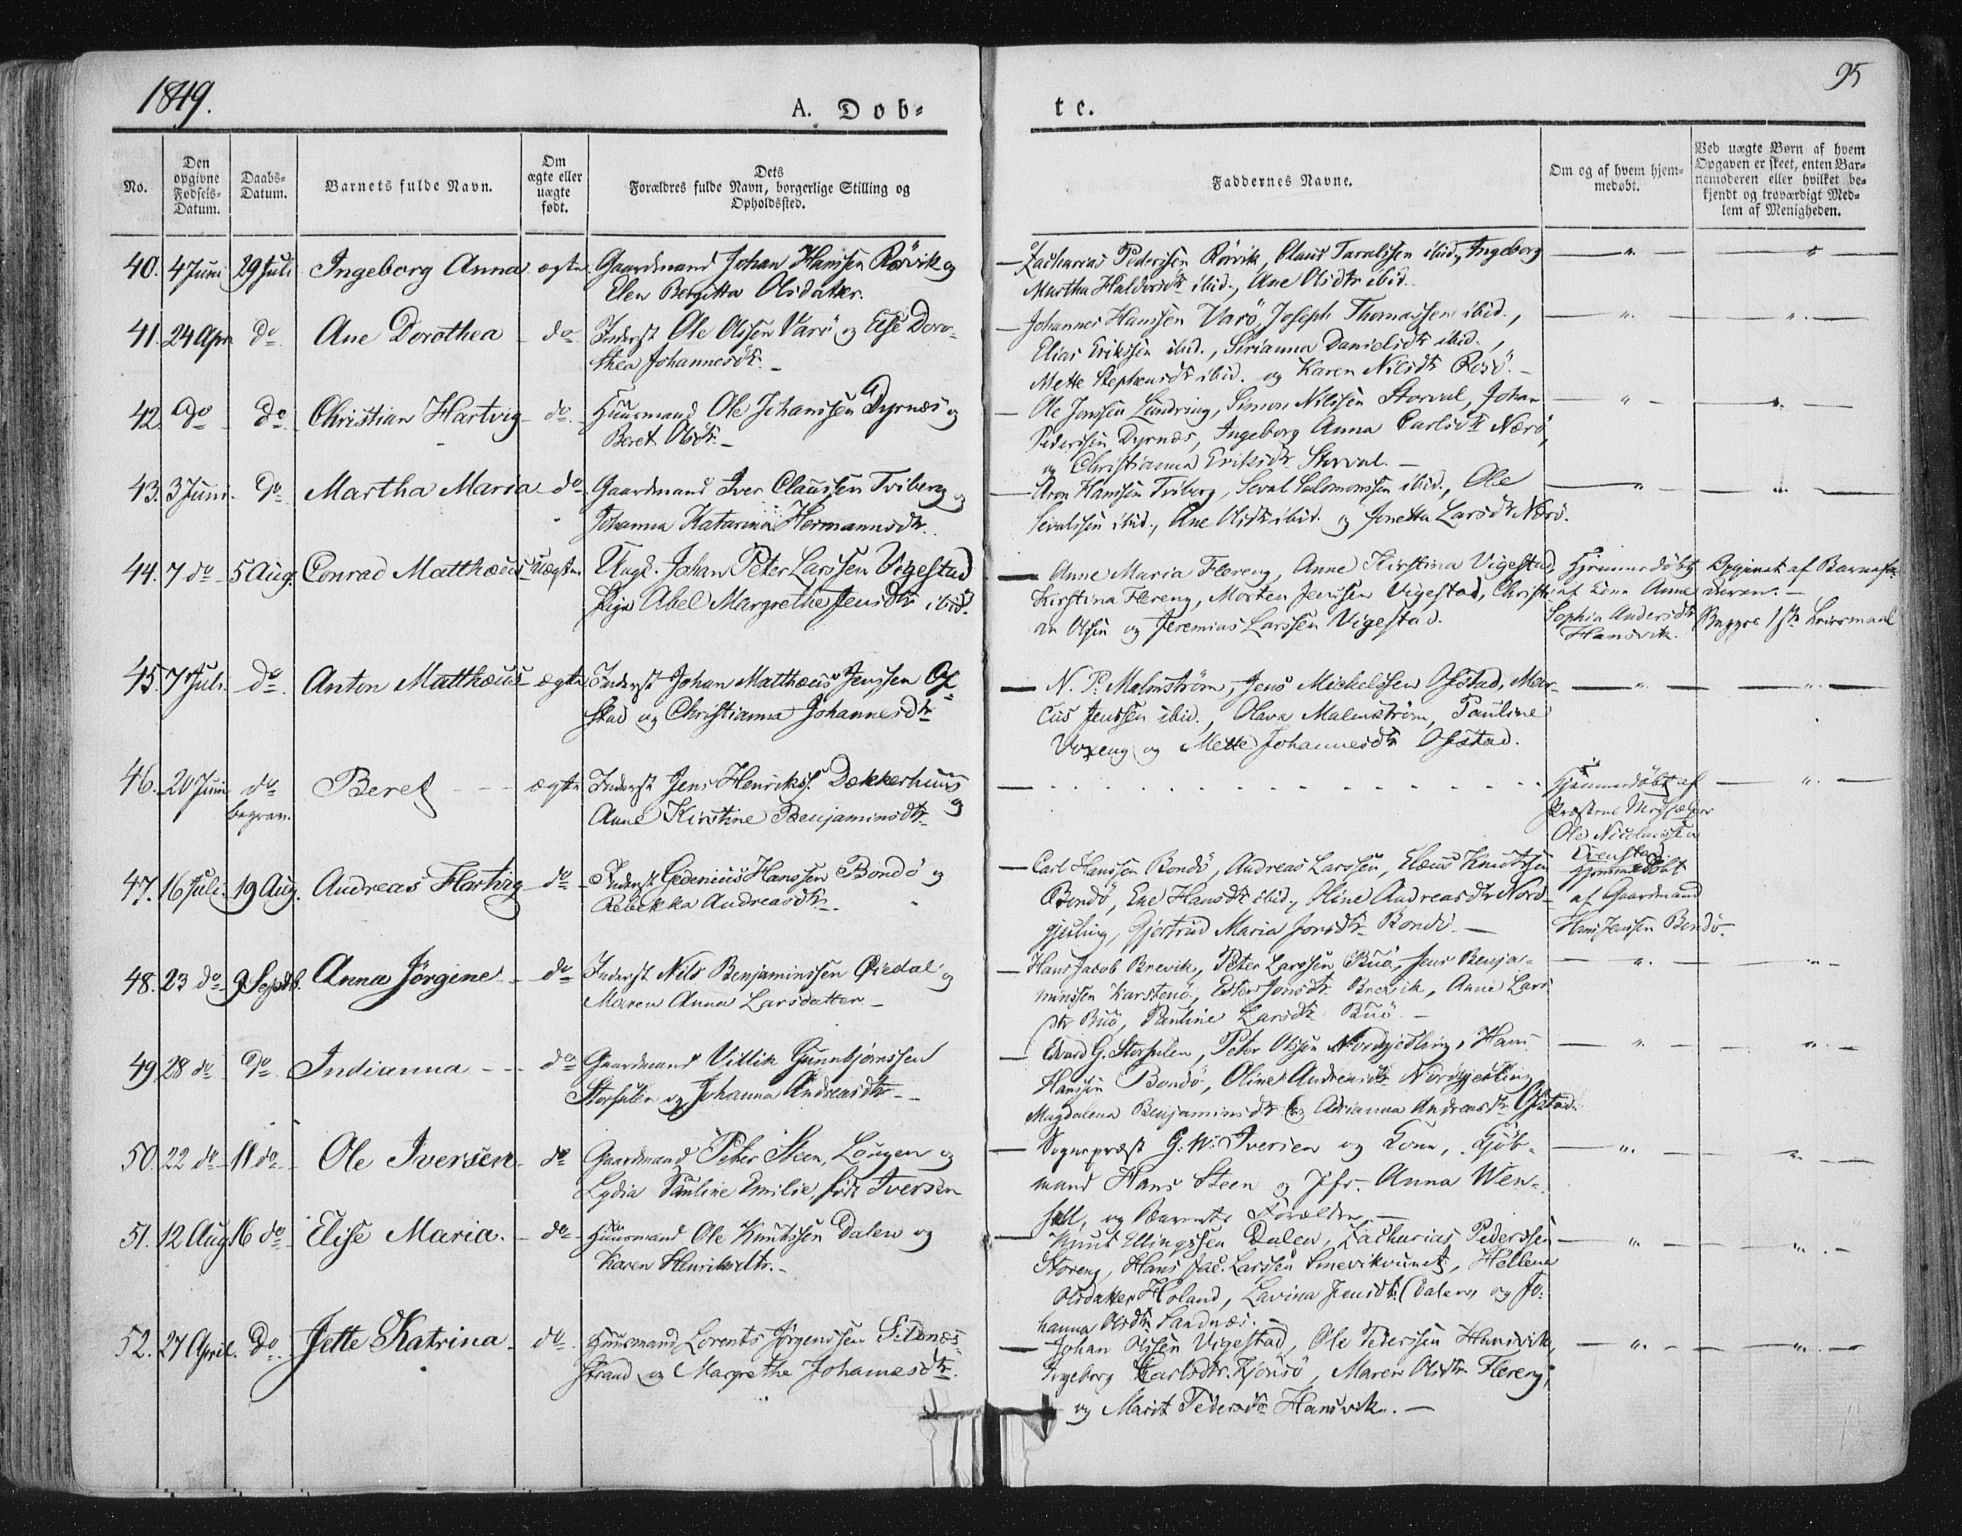 1849.
A. Döb=
te.
95
No.
Den opgivne Fødsels-Datum.
Daabs-Datum.
Barnets fulde Navn.
Om ægte eller uægte født.
Dets Forældres fulde Navn, borgerlige Stilling og Opholdssted.
Faddernes Navne.
Om og af hvem hjemmedøbt.
Ved uægte Børn af hvem Opgaven er skeet, enten Barnemoderen eller hvilket bekjendt og troværdigt Medlem af Menigheden.
40. 4 Juni 29 Juli Ingeborg Anna ægte Gaardmand Johan Hanssen Rørvik og
Elen Bergitta Olsdatter.
Zacharias Pederssen Rörvik, Claus Taraldsen ibid., Ingeborg
Martha Haldorsdtr ibid., Ane Olsdtr ibid.
41. 24 Apr. do Ane Dorothea do Inderst Ole Olssen Varö og Else Doro-
thea Johannesdtr.
Johannes Hanssen Varö, Joseph Thomassen ibid.,
Elias Erikssen ibid., Sirianna Danielsdtr ibid.,
Mette Stephensdtr ibid. og Karen Nilsdtr Rosö.
42. do do Christian Hartvig do Huusmand Ole Johanssen Dyrnæs og
Beret Olsdtr.
Ole Janssen Lundring, Simon Nilssen Storval, Johan
Pederssen Dyrnæs, Ingeborg Anna Carlsdtr Nærö,
og Christianna Eriksdtr Storval.
43. 3 Juni. do Martha Maria do Gaardmand Iver Claussen Tviberg og
Johanna Katarina Hermannsdtr.
Aron Hanssen Tviberg, Sevat Salomonssen ibid., Ole
Sevatssen ibid., Ane Olsdtr ibid. og Jonetta Larsdtr Nærö.
44. 7 do 5 Aug. Conrad Matthæus uægte Ungk. Johan Peter Larssen Vigestad
Pige Abel Margrethe Jensdtr ibid.
Anne Maria Flereng, Anne Kirstina Vigestad,
Kirstina Flereng, Morten Jenssen Vigestad, Christi-
an Olsen og Jeremias Larssen Vigestad.
Hjemmedøbt
af Kone Anne
Sophia Andersdtr
Hansvik.
Opgivet af Barnefa-
deren.
Begges 1ste Leiermaal
45. 7 Juli. do Anton Matthæus ægte Inderst Johan Matthæus Jenssen Of-
stad og Christianna Johannesdtr
N. P. Malmström, Jens Mickelssen Ofstad, Mar-
cus Jenssen ibid., Olava Malmström, Pauline
Voxeng og Mette Johannesdtr Ofstad.
46. 20 Juni do
begrav.
Beret ægte Inderst Jens Henrikss. Dækkerhuus og
Anne Kirstine Benjaminsdtr
Hjemmedøbt af
Præstens Medhjelper
Ole Nicolaissen
Evenstad.
47. 16 Juli. 19 Aug. Andreas Hartvig do Inderst Gedenius Hanssen Bondö og
Rebekka Andreasdtr.
Carl Hanssen Bondö, Andreas Larssen, Elæus Knutssen
Bondö, Ene Hansdtr ibid., Oline Andreasdtr Nord-
gjesling, Gjertrud Maria Jonsdtr Bondö.
Hjemmedøbt
af Gaardmand
Hans Jenssen Bondö.
48. 23 do 9 Septb. Anna Jörgine do Inderst Nils Benjaminssen Øiedal og
Maren Anna Larsdatter
Hans Jacob Brevik, Peter Larssen Buö, Jens Benja-
minssen Karstenö, Ester Jonsdtr Brevik, Anne Lars-
dtr Buö, Pauline Larsdtr Buö.
49. 28 do do Indianna do Gaardmand Villik Gunnbjørnssen
Storsulen og Johanna Andreasdtr
Edvard G. Storsulen, Peter Olssen Nordgjesling, Hans
Hanssen Bondö, Oline Andreasdtr Nordgjesling,
Magdalena Benjaminsdtr og Adrianna Andreasdtr Ofstad.
50. 22 do 11 do Ole Iversen do Gaardmand Peter Steen, Lougen og
Lydia Pauline Emilie, född Iversen
Sognepræst G. W. Iversen og Kone, Kjöb-
mand Hans Steen og Jfr. Anna Wen-
sell, og Barnets Forældre.
51. 12 Aug. 16 do Elise Maria. do Huusmand Ole Knutssen Dalen og
Karen Henriksdtr.
Knut Ellingssen Dalen, Zacharias Pederssen
Storeng, Hans Jac. Larssen Smevikvunet, Hellene
Olsdatter Holand, Lavina Jensdtr Dalen, og Jo-
hanna Olsdtr Sandnæs.
52. 27 April. do Jette Katrina do Huusmand Lorents Jørgenssen Sildnæs-
strand og Margrethe Johannesdtr.
Johan Olssen Vigestad, Ole Pederssen Hansvik,
Ingeborg Karlsdtr. Kjönsö, Maren Olsdtr Flereng,
og Marit Pedersdtr Hansvik.